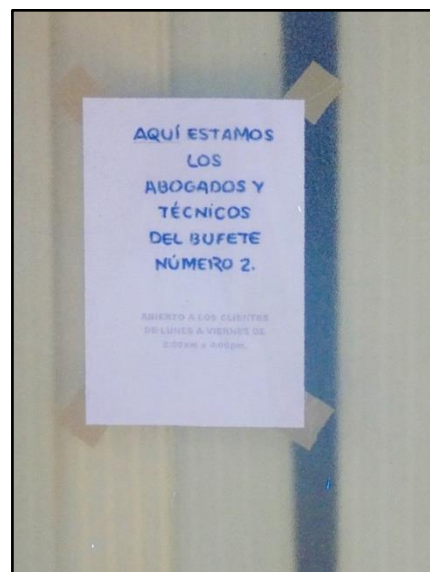 AQUÍ ESTAMOS
LOS
ABOGADOS Y
TÉCNICOS
DEL BUFETE
NÚMERO 2.
ABIERTO A LOS CLIENTES
DE LUNES A VIERNES DE
a 4:00pm.